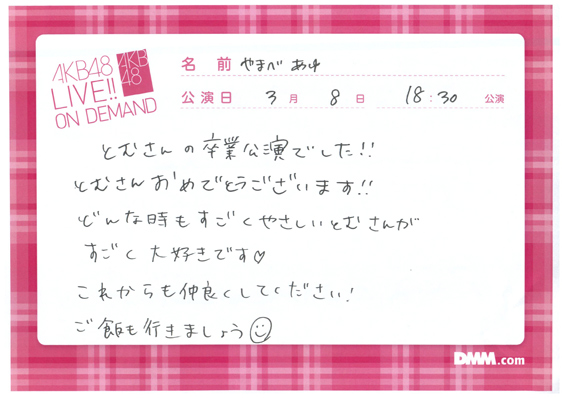 AKB48
LIVE!!
ON DEMAND
AKB
48
名 前 やまべ あゆ
公演日 3月 8日 18:30 公演
とむさんの卒業公演でした!!
とむさんおめでとうございます!!
どんな時もすごくやさしいとむさんが
すごく大好きです♡
これからも仲良くしてください!
ご飯も行きましょう☺
DMM.com